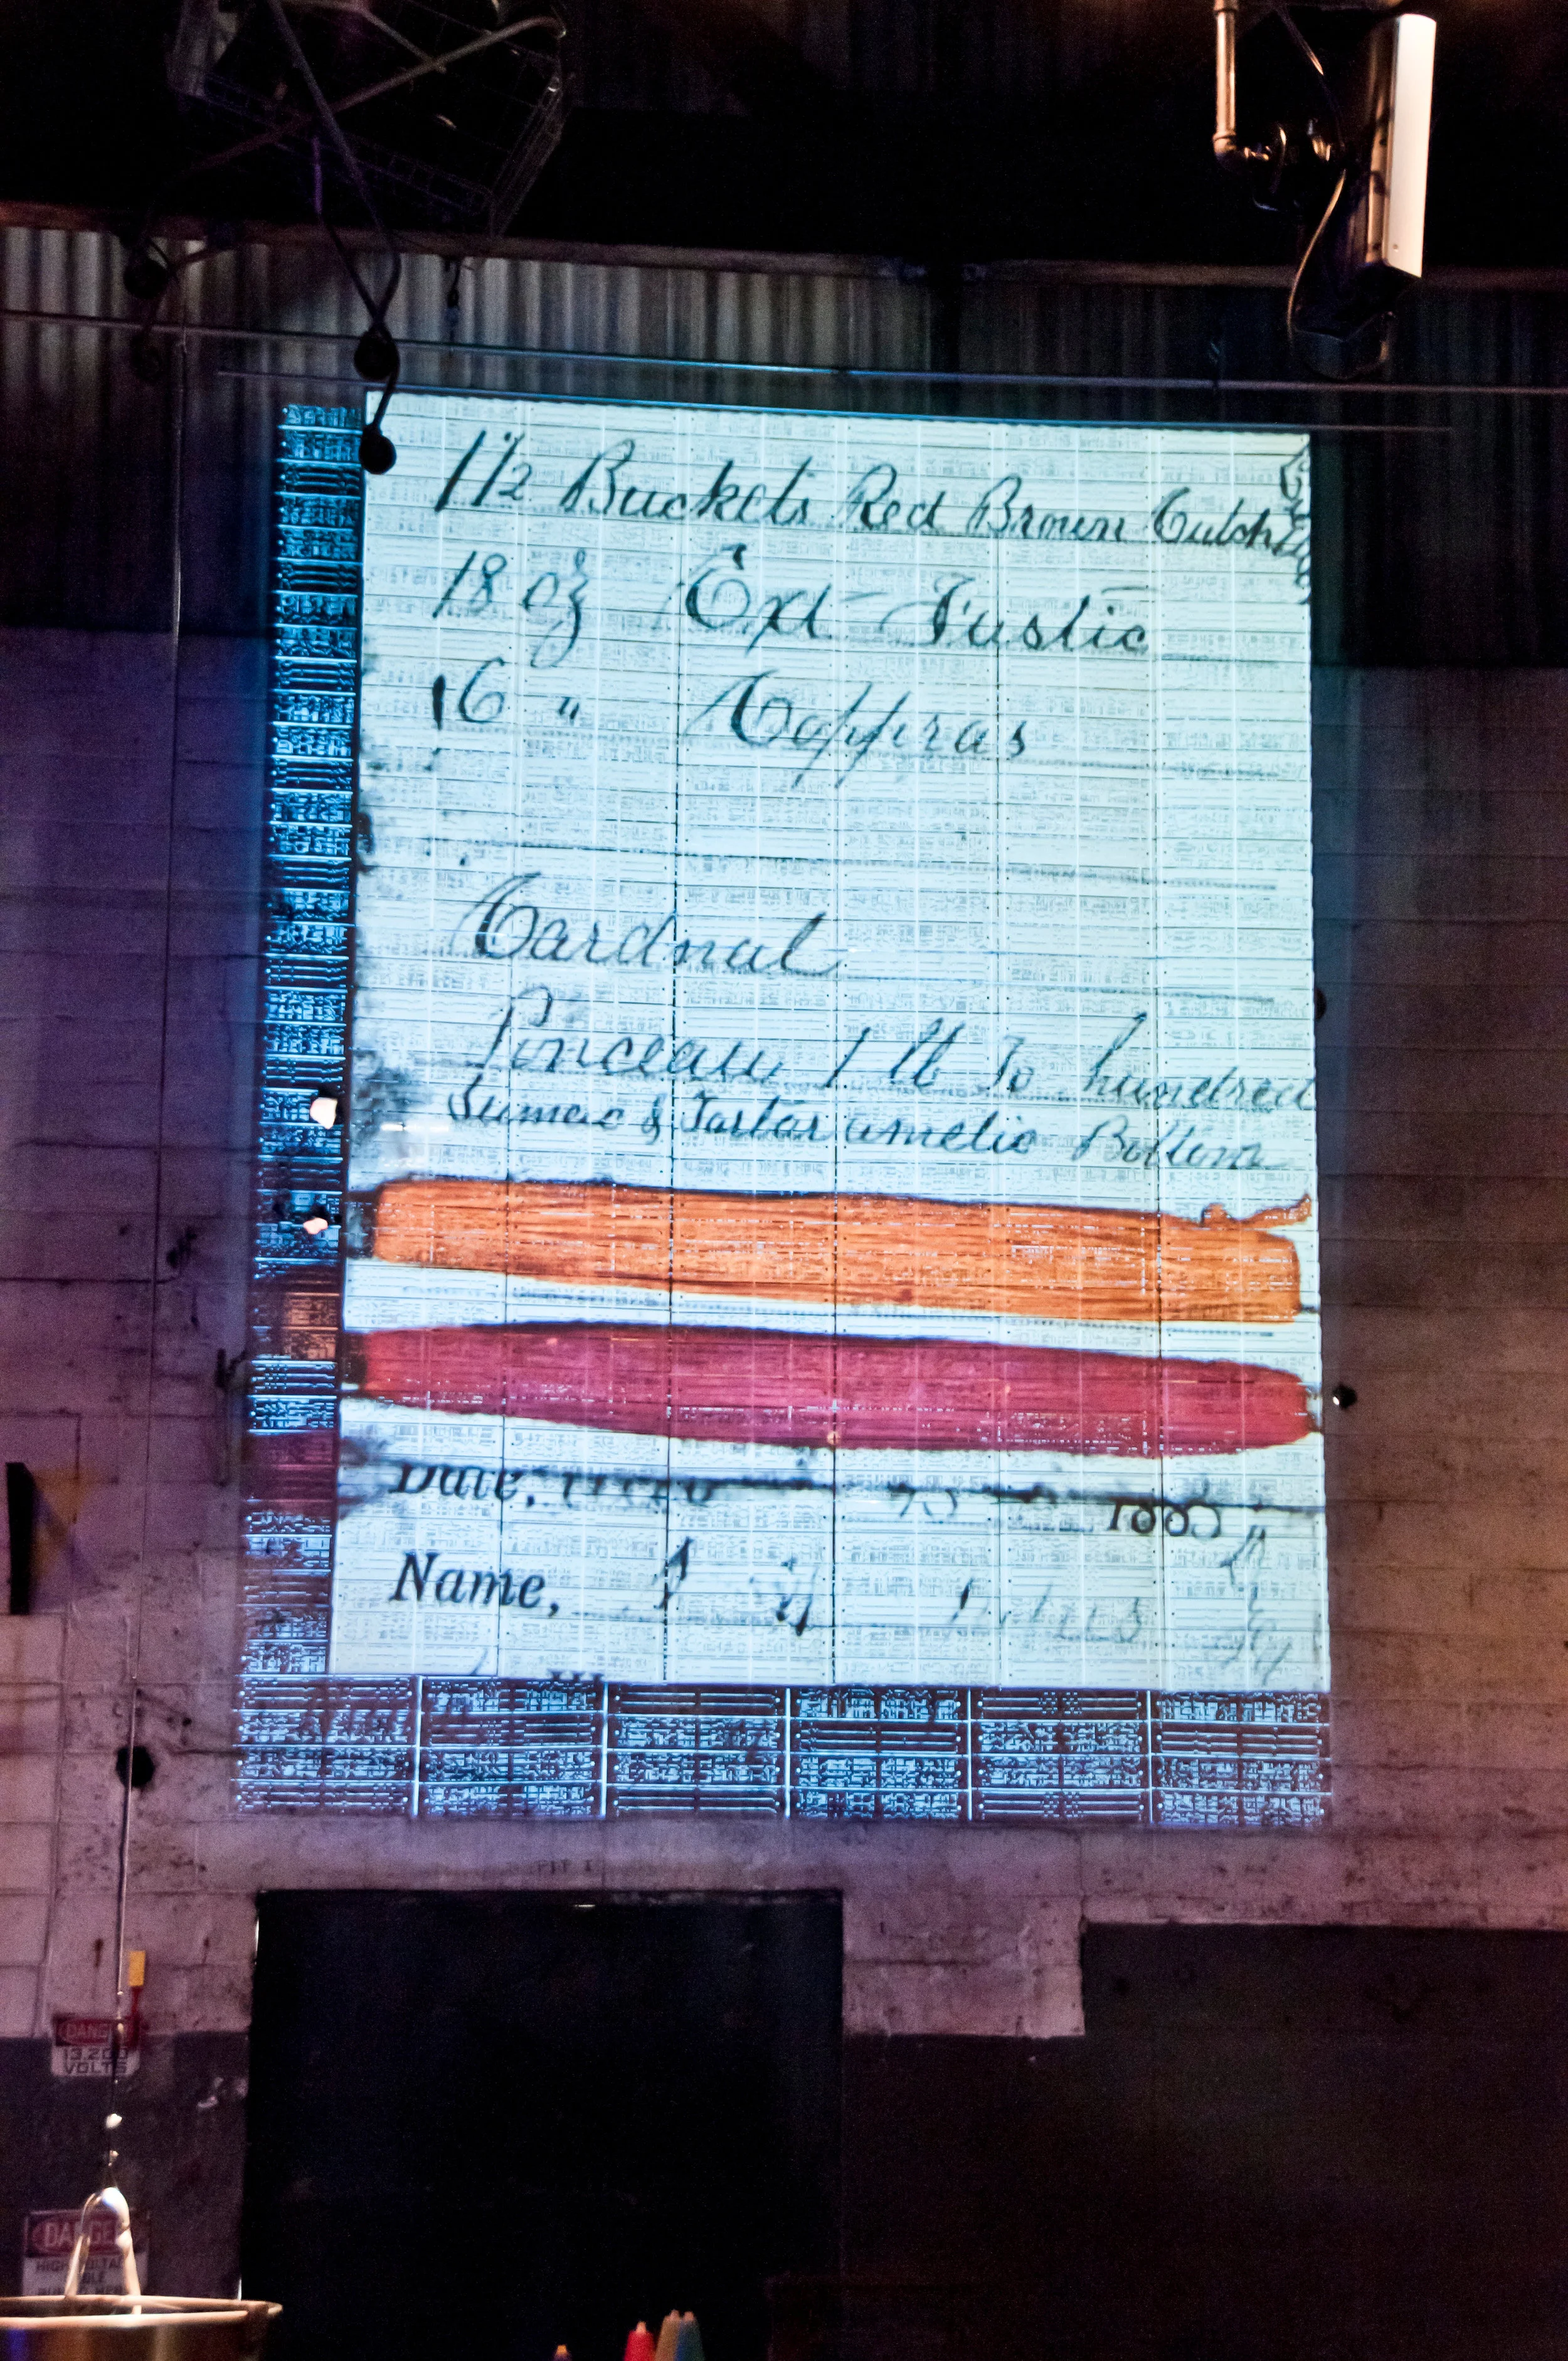 1 1/2 Buckets Red Brown Cutch
18 oz Ext Fustic
16 " Copperas
Cardnal
Ponceau 1 lb To hundred
Sumac & Tartar ametic Bottom
Date,
Name,
PIT 1
DANGER
13,200
VOLTS
DANGER
HIGH VOLTAGE